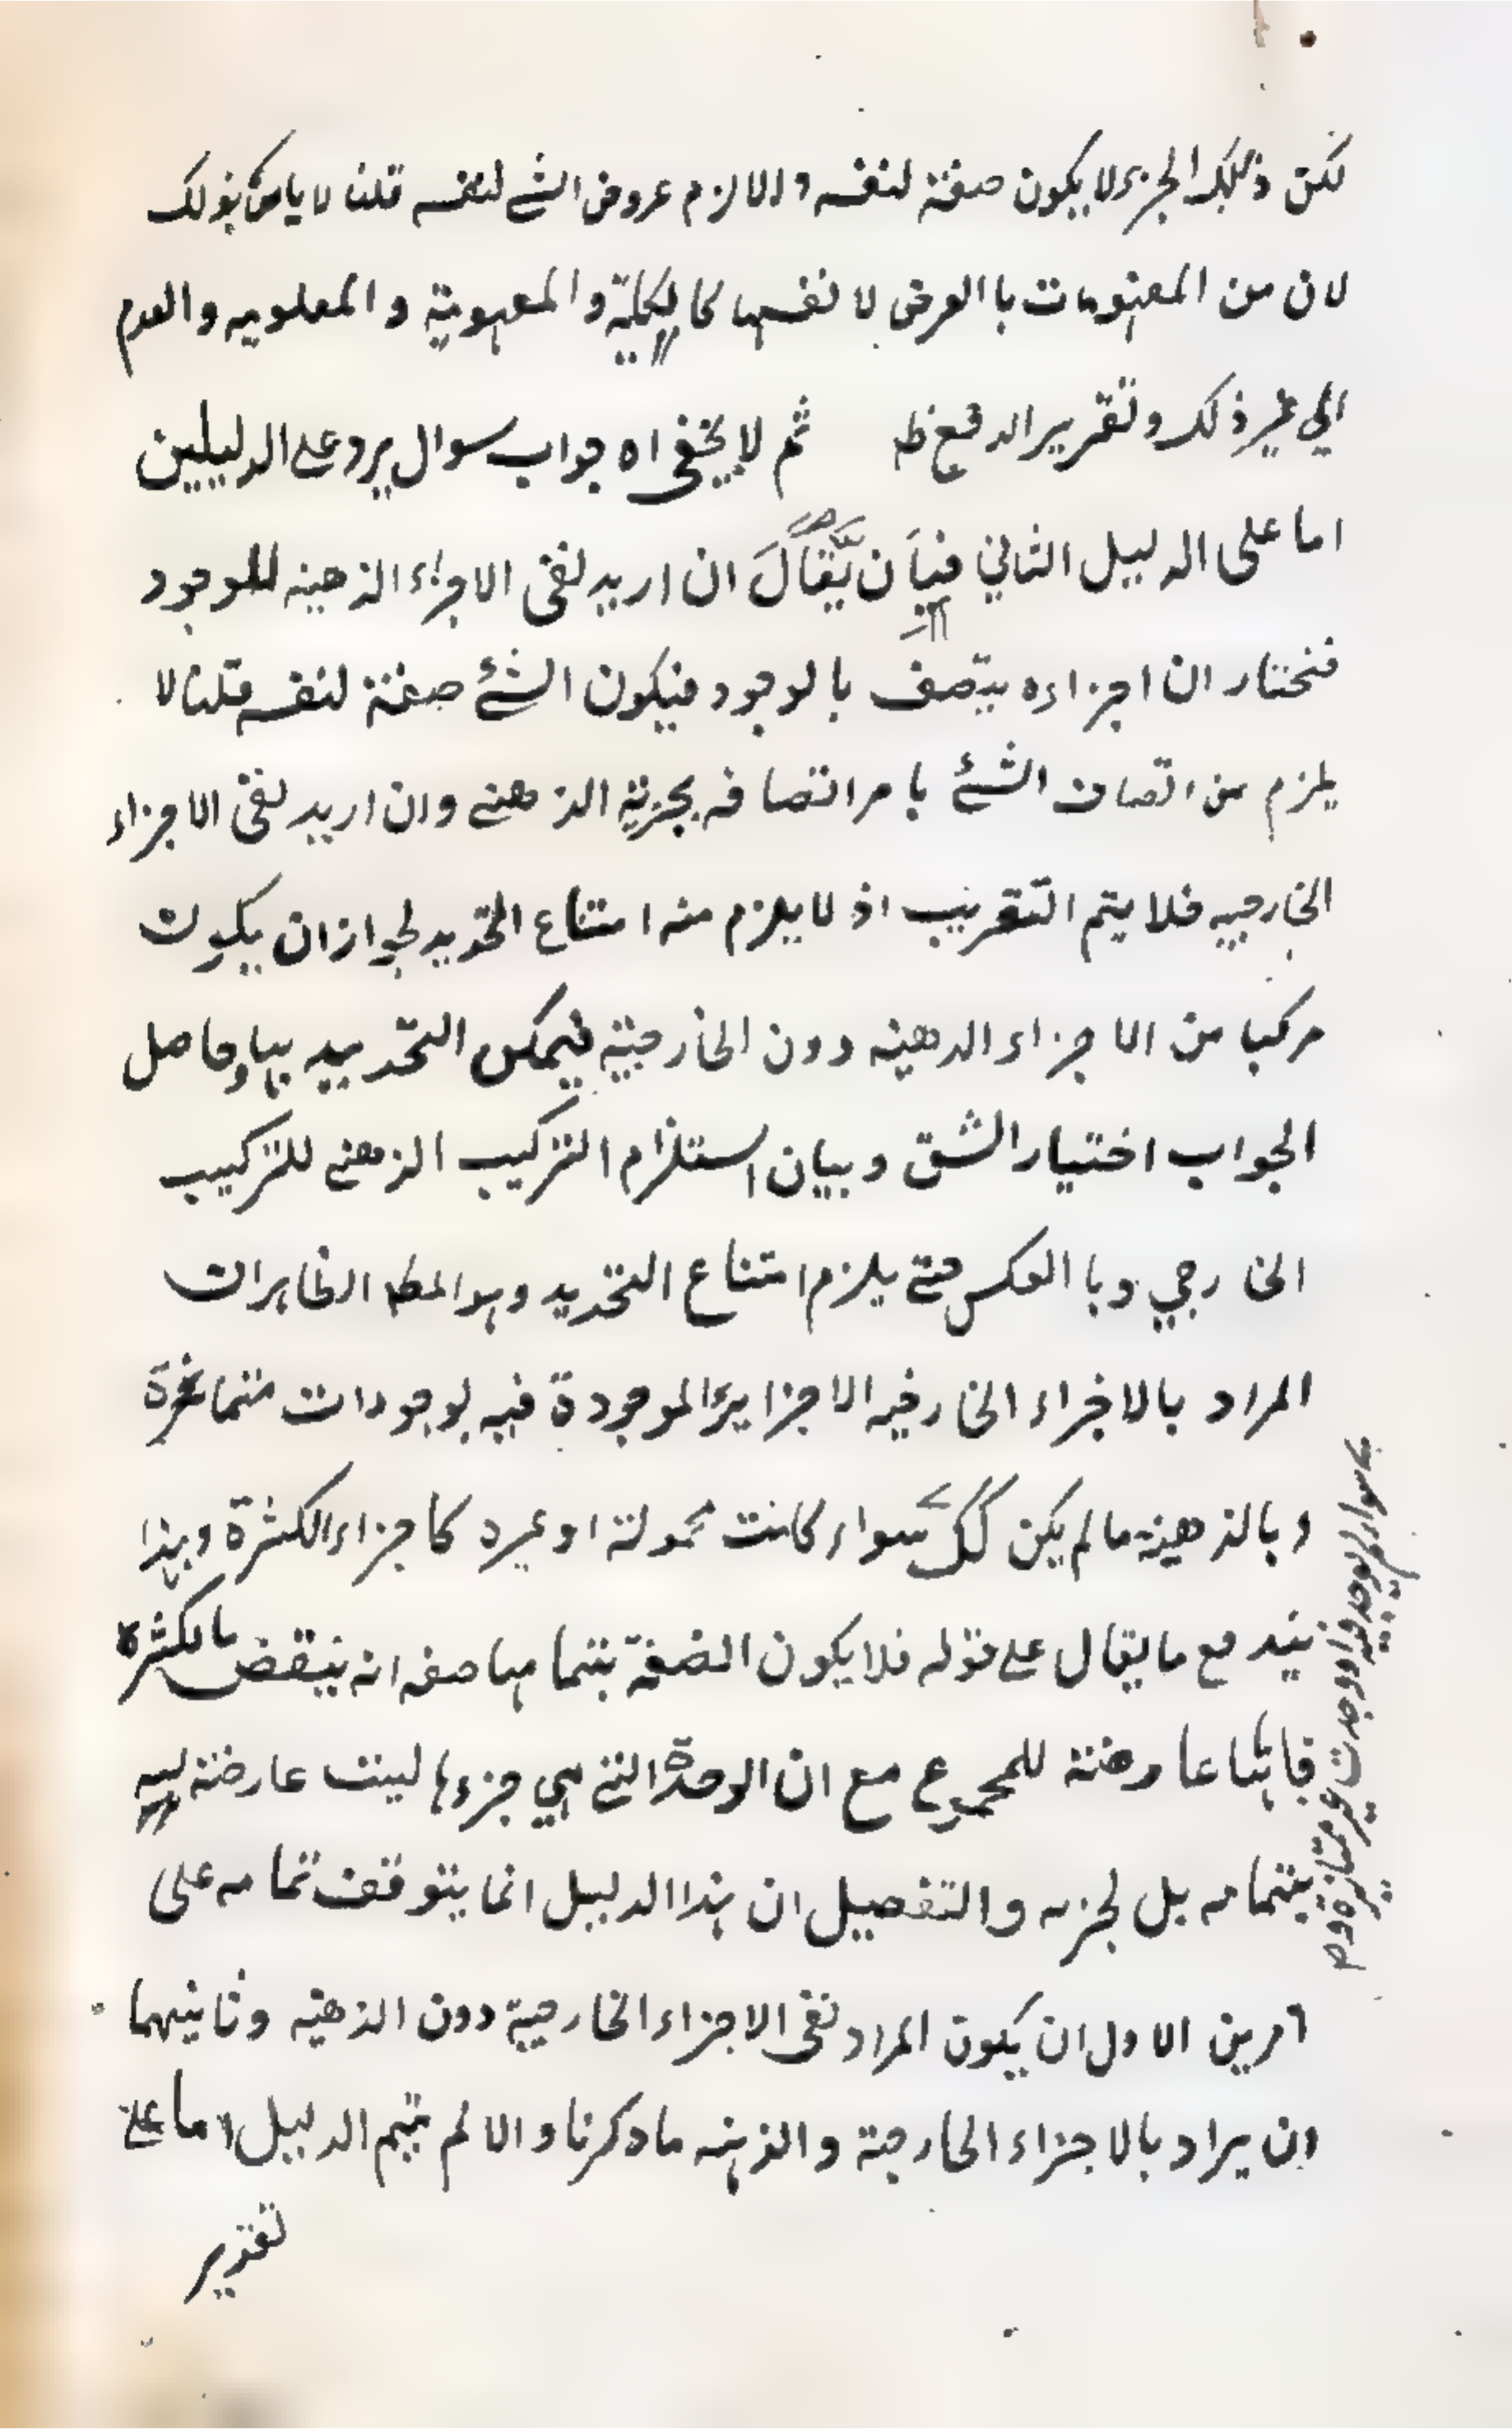 لكن ذلك الجزء لا يكون صفة لنفسه والا لزم عروض الشئ لنفسه قلنا لا باس بذلك
لان من المفهومات با العرض لا نفسها كالكلية و المفهومية و المعلوميه والعدم
الي غير ذلك و تقرير الدفع ظ ثم لا يخفى اه جواب سوال يرد على الدليلين
اما على الدليل الثاني فبان يقال ان اريد نفى الاجزاء الذهينه للوجود
فنختار ان اجزاءه يتصف بالوجود فيكون الشئ صفة لنفسه قلنا لا
يلزم من اتصاف الشئ بامر اتصافه بجزئه الذهنے وان اريد نفى الاجزاء
الخارجيه فلا يتم التقريب اذ لا يلزم منه امتناع التحديد لجواز ان يكون
مركبا من الاجزاء الدهينه دون الخارجية فيمكن التحديد بها وحاصل
الجواب اختيار الشق و بيان استلزام التركيب الذهنے للتركيب
الخارجي و با العكس حتے يلزم امتناع التحديد وهو المط الظاهران
المراد بالاجزاء الخارجيه الاجزاء الموجودة فيه بوجودات متمائزة
و بالذهينه مالم يكن كك سواء كانت محمولة او غيره كاجزاء الكثرة وبهذا
يندفع ما يقال على قوله فلا يكون الصفة بتمامها صفه انه ينقض بالكثرة
فانها عارضة للمجموع مع ان الوحدة التے هي جزءها ليست عارضة ليه
بتمامه بل لجزءه والتفصيل ان هذا الدليل انما يتوقف تمامه على
امرين الاول ان يكون المراد نفى الاجزاء الخارجية دون الذهنيه وثانيهما
ان يراد بالاجزاء الخارجية والذهنيه ماذكرنا والا لم يتم الدليل اما على
تقدير